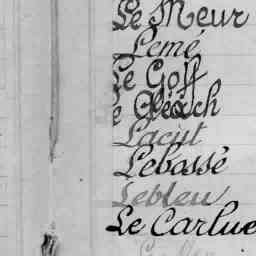 Le Meur
Lemé
Le Goff
Le Gléach
Lacut
Lebossé
Lebleu
Le Carlue